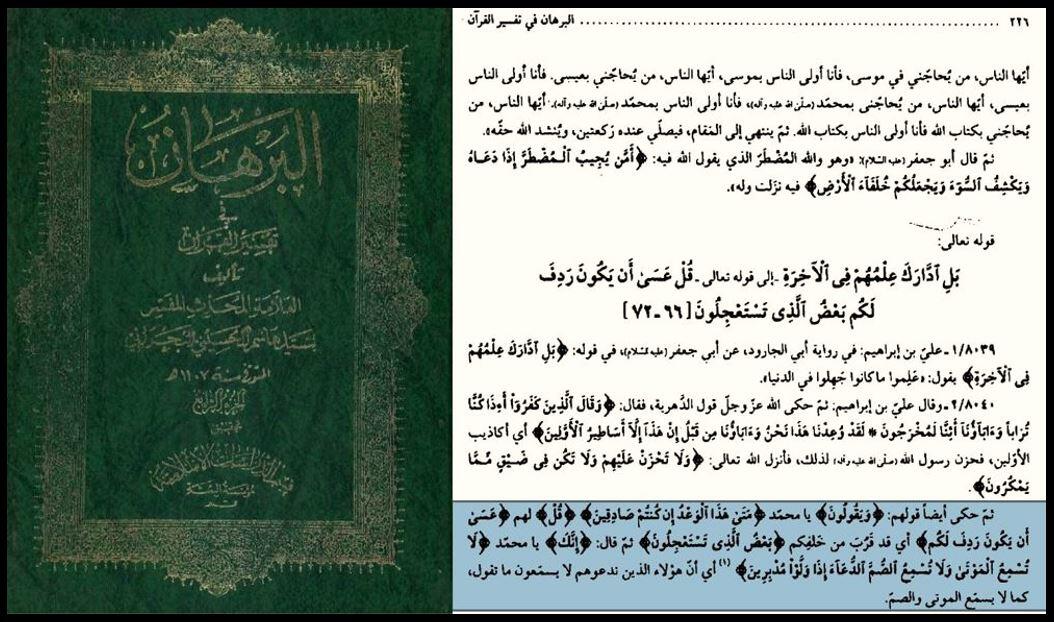 البرهان
في
تفسير القرآن
تأليف
العلامة المحدث المفسر
السيد هاشم الحسيني البحراني
المتوفى سنة ١١٠٧ هـ
الجزء الرابع
تحقيق
قسم الدراسات الإسلامية
مؤسسة البعثة
قم
٢٢٦ ........ البرهان في تفسير القرآن
أيّها الناس، من يُحاجّني في موسى، فأنا أولى الناس بموسى، أيّها الناس، من يُحاجّني بعيسى. فأنا أولى الناس
بعيسى، أيّها الناس، من يُحاجّني بمحمّد (صلّى الله عليه وآله)، فأنا أولى الناس بمحمّد (صلّى الله عليه وآله). أيّها الناس، من
يُحاجّني بكتاب الله فأنا أولى الناس بكتاب الله. ثمّ ينتهي إلى المَقام، فيصلّي عنده رَكعتين، ويُنشد الله حقّه».
ثمّ قال أبو جعفر (عليه السّلام): «وهو والله المُضْطَرّ الذي يقول الله فيه: ﴿أَمَّن يُجِيبُ ٱلْمُضْطَرَّ إِذَا دَعَاهُ
وَيَكْشِفُ ٱلسُّوٓءَ وَيَجْعَلُكُمْ خُلَفَآءَ ٱلْأَرْضِ﴾ فيه نزَلت وله».
قوله تعالى:
بَلِ ٱدَّارَكَ عِلْمُهُمْ فِى ٱلْآخِرَةِ -إلى قوله تعالى- قُلْ عَسَىٰٓ أَن يَكُونَ رَدِفَ
لَكُم بَعْضُ ٱلَّذِى تَسْتَعْجِلُونَ [٦٦-٧٢]
٨٠٣٩/١ ـ عليّ بن إبراهيم: في رواية أبي الجارود، عن أبي جعفر (عليه السّلام)، في قوله: ﴿بَلِ ٱدَّارَكَ عِلْمُهُمْ
فِى ٱلْآخِرَةِ﴾ يقول: «عَلِموا ما كانوا جَهِلوا في الدنيا».
٨٠٤٠/٢ ـ وقال عليّ بن إبراهيم: ثمّ حكى الله عزّ وجلّ قول الدَّهرية، فقال: ﴿وَقَالَ ٱلَّذِينَ كَفَرُوٓاْ أَءِذَا كُنَّا
تُرَاباً وَءَابَآؤُنَآ أَئِنَّا لَمُخْرَجُونَ * لَقَدْ وُعِدْنَا هَذَا نَحْنُ وَءَابَآؤُنَا مِن قَبْلُ إِنْ هَذَآ إِلَّآ أَسَاطِيرُ ٱلْأَوَّلِينَ﴾ أي أكاذيب
الأوّلين، فحزن رسول الله (صلّى الله عليه وآله) لذلك، فأنزل الله تعالى: ﴿وَلَا تَحْزَنْ عَلَيْهِمْ وَلَا تَكُن فِى ضَيْقٍ مِّمَّا
يَمْكُرُونَ﴾.
ثمّ حكى أيضاً قولهم: ﴿وَيَقُولُونَ﴾ يا محمد ﴿مَتَىٰ هَذَا ٱلْوَعْدُ إِن كُنتُمْ صَادِقِينَ﴾ ﴿قُلْ﴾ لهم ﴿عَسَىٰٓ
أَن يَكُونَ رَدِفَ لَكُم﴾ أي قد قَرُبَ من خَلفِكم ﴿بَعْضُ ٱلَّذِى تَسْتَعْجِلُونَ﴾ ثمّ قال: ﴿إِنَّكَ﴾ يا محمد ﴿لَا
تُسْمِعُ ٱلْمَوْتَىٰ وَلَا تُسْمِعُ ٱلصُّمَّ ٱلدُّعَآءَ إِذَا وَلَّوْاْ مُدْبِرِينَ﴾ (١) أي أنّ هؤلاء الذين تدعوهم لا يسمَعون ما تقول،
كما لا يسمَع الموتى والصمّ.